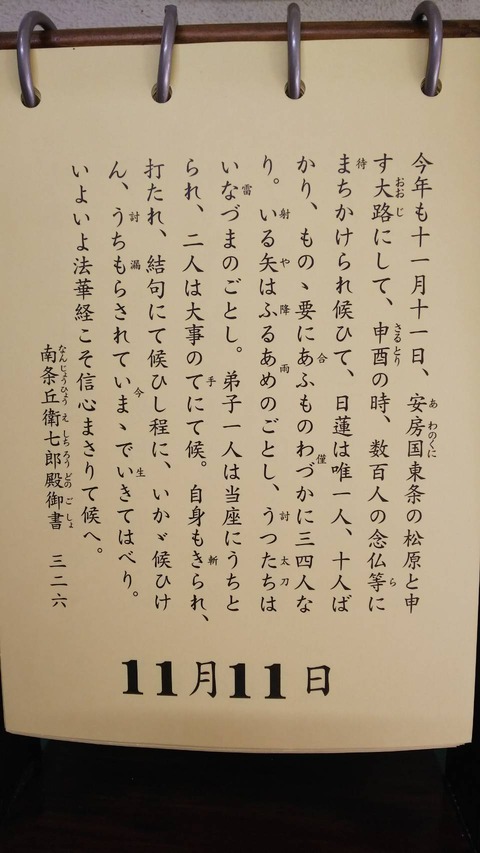 今年も十一月十一日、安房国東条の松原と申
す大路にして、申酉の時、数百人の念仏等に
まちかけられ候ひて、日蓮は唯一人、十人ば
かり、ものゝ要にあふものわづかに三四人な
り。いる矢はふるあめのごとし、うつたちは
いなづまのごとし。弟子一人は当座にうちと
られ、二人は大事のてにて候。自身もきられ、
打たれ、結句にて候ひし程に、いかゞ候ひけ
ん、うちもらされていまゝでいきてはべり。
いよいよ法華経こそ信心まさりて候へ。
南条兵衛七郎殿御書 三二六
11月11日